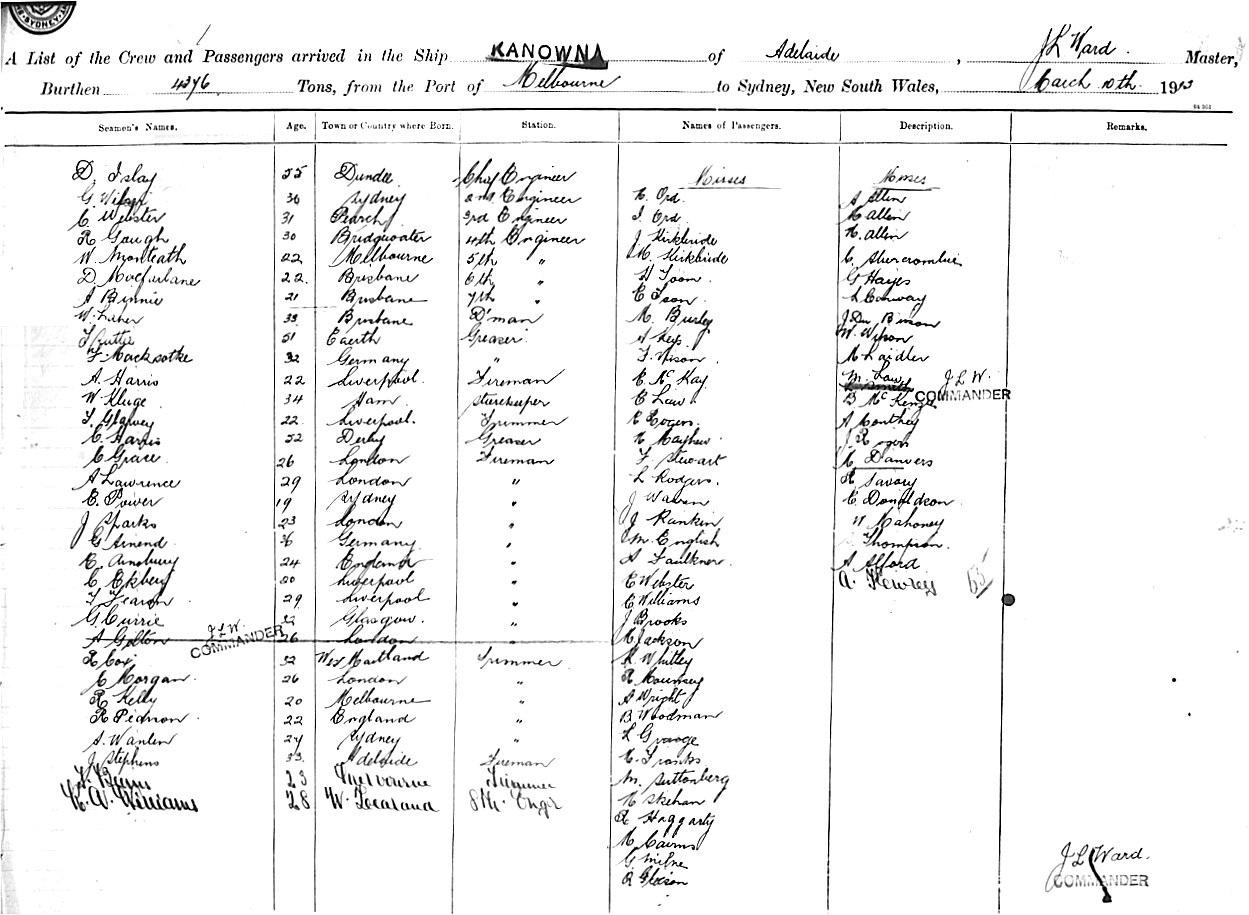 SYDNEY
A List of the Crew and Passengers arrived in the Ship KANOWNA of Adelaide, J L Ward. Master,
Burthen 4376 Tons, from the Port of Melbourne to Sydney, New South Wales, March 10th 1913
Seamen's Names. Age. Town or Country where Born. Station. Names of Passengers. Description. Remarks.
Misses Misses
D. Islay 55 Dundee Chief Engineer
G. Wilson 30 Sydney 2nd Engineer E. Ord. A Allen
C. Webster 31 3rd Engineer I. Ord M Allen
R Gough 30 Bridgwater 4th Engineer J Kirkbride H. Allen
W. Monteath 22 Melbourne 5th " M. Kirkbride C. Abercrombie
D. Macfarlane 22. Brisbane 6th " H Toon. G Hayes
A Binnie 21 Brisbane 7th " E Ison. L Conway
W. 33 Brisbane D'man M. Burley J Binson
51 Greaser. A Keys. W. Wilson
F. Macksotke 32 Germany " F. Nixon. M Laidler
A. Harris 22 Liverpool. Fireman E. McKay. M. Law J L W. COMMANDER
W. Kluge 34 Ham Storekeeper E Law. B McKenzie
22 Liverpool. Trimmer R Rogers. A
C. Harris 52 Derby Greaser M Mayhew. J Rogers
C Grace 26 London Fireman F Stewart Danvers
A Lawrence 29 London " L Rodgers. R Savory
E. Power 19 Sydney " J Warren E Donaldson
J Sparks 23 London " J Rankin W Mahoney
G Amend 36 Germany " M. English Thompson.
Amsbury 24 England " A Faulkner. A Alford
C Ekberg 20 Liverpool " E Webster A. 63
F Fearon 29 Liverpool " E Williams
G Currie 32 Glasgow. " J Brooks
A Golton J.L.W. COMMANDER 26 London " M Jackson
R Cox. 32 West Maitland Trimmer K Whitley
C Morgan. 26 London " R Mounsey
R Kelly 20 Melbourne " A Wright
R Pearson 22 England " B Woodman
S. Wanlen 24 Sydney " L Grange
J Stephens 33. Adelaide Fireman E. Franks
23 Melbourne Trimmer M. Suttonberg
Williams 28 8th. Engr M Skehan
R Haggarty
M Cairns
G Milne J L Ward.
Gleeson COMMANDER